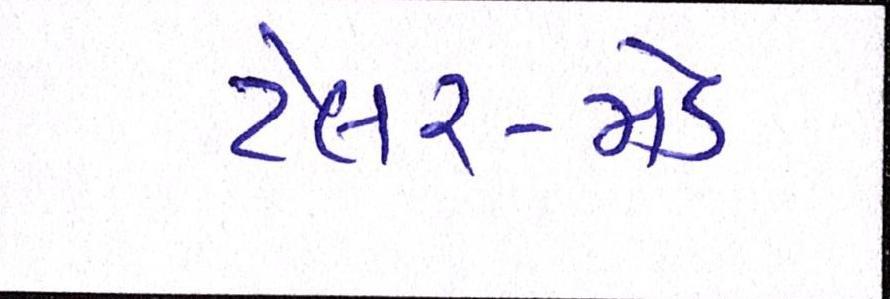 ટેલર-મેડ